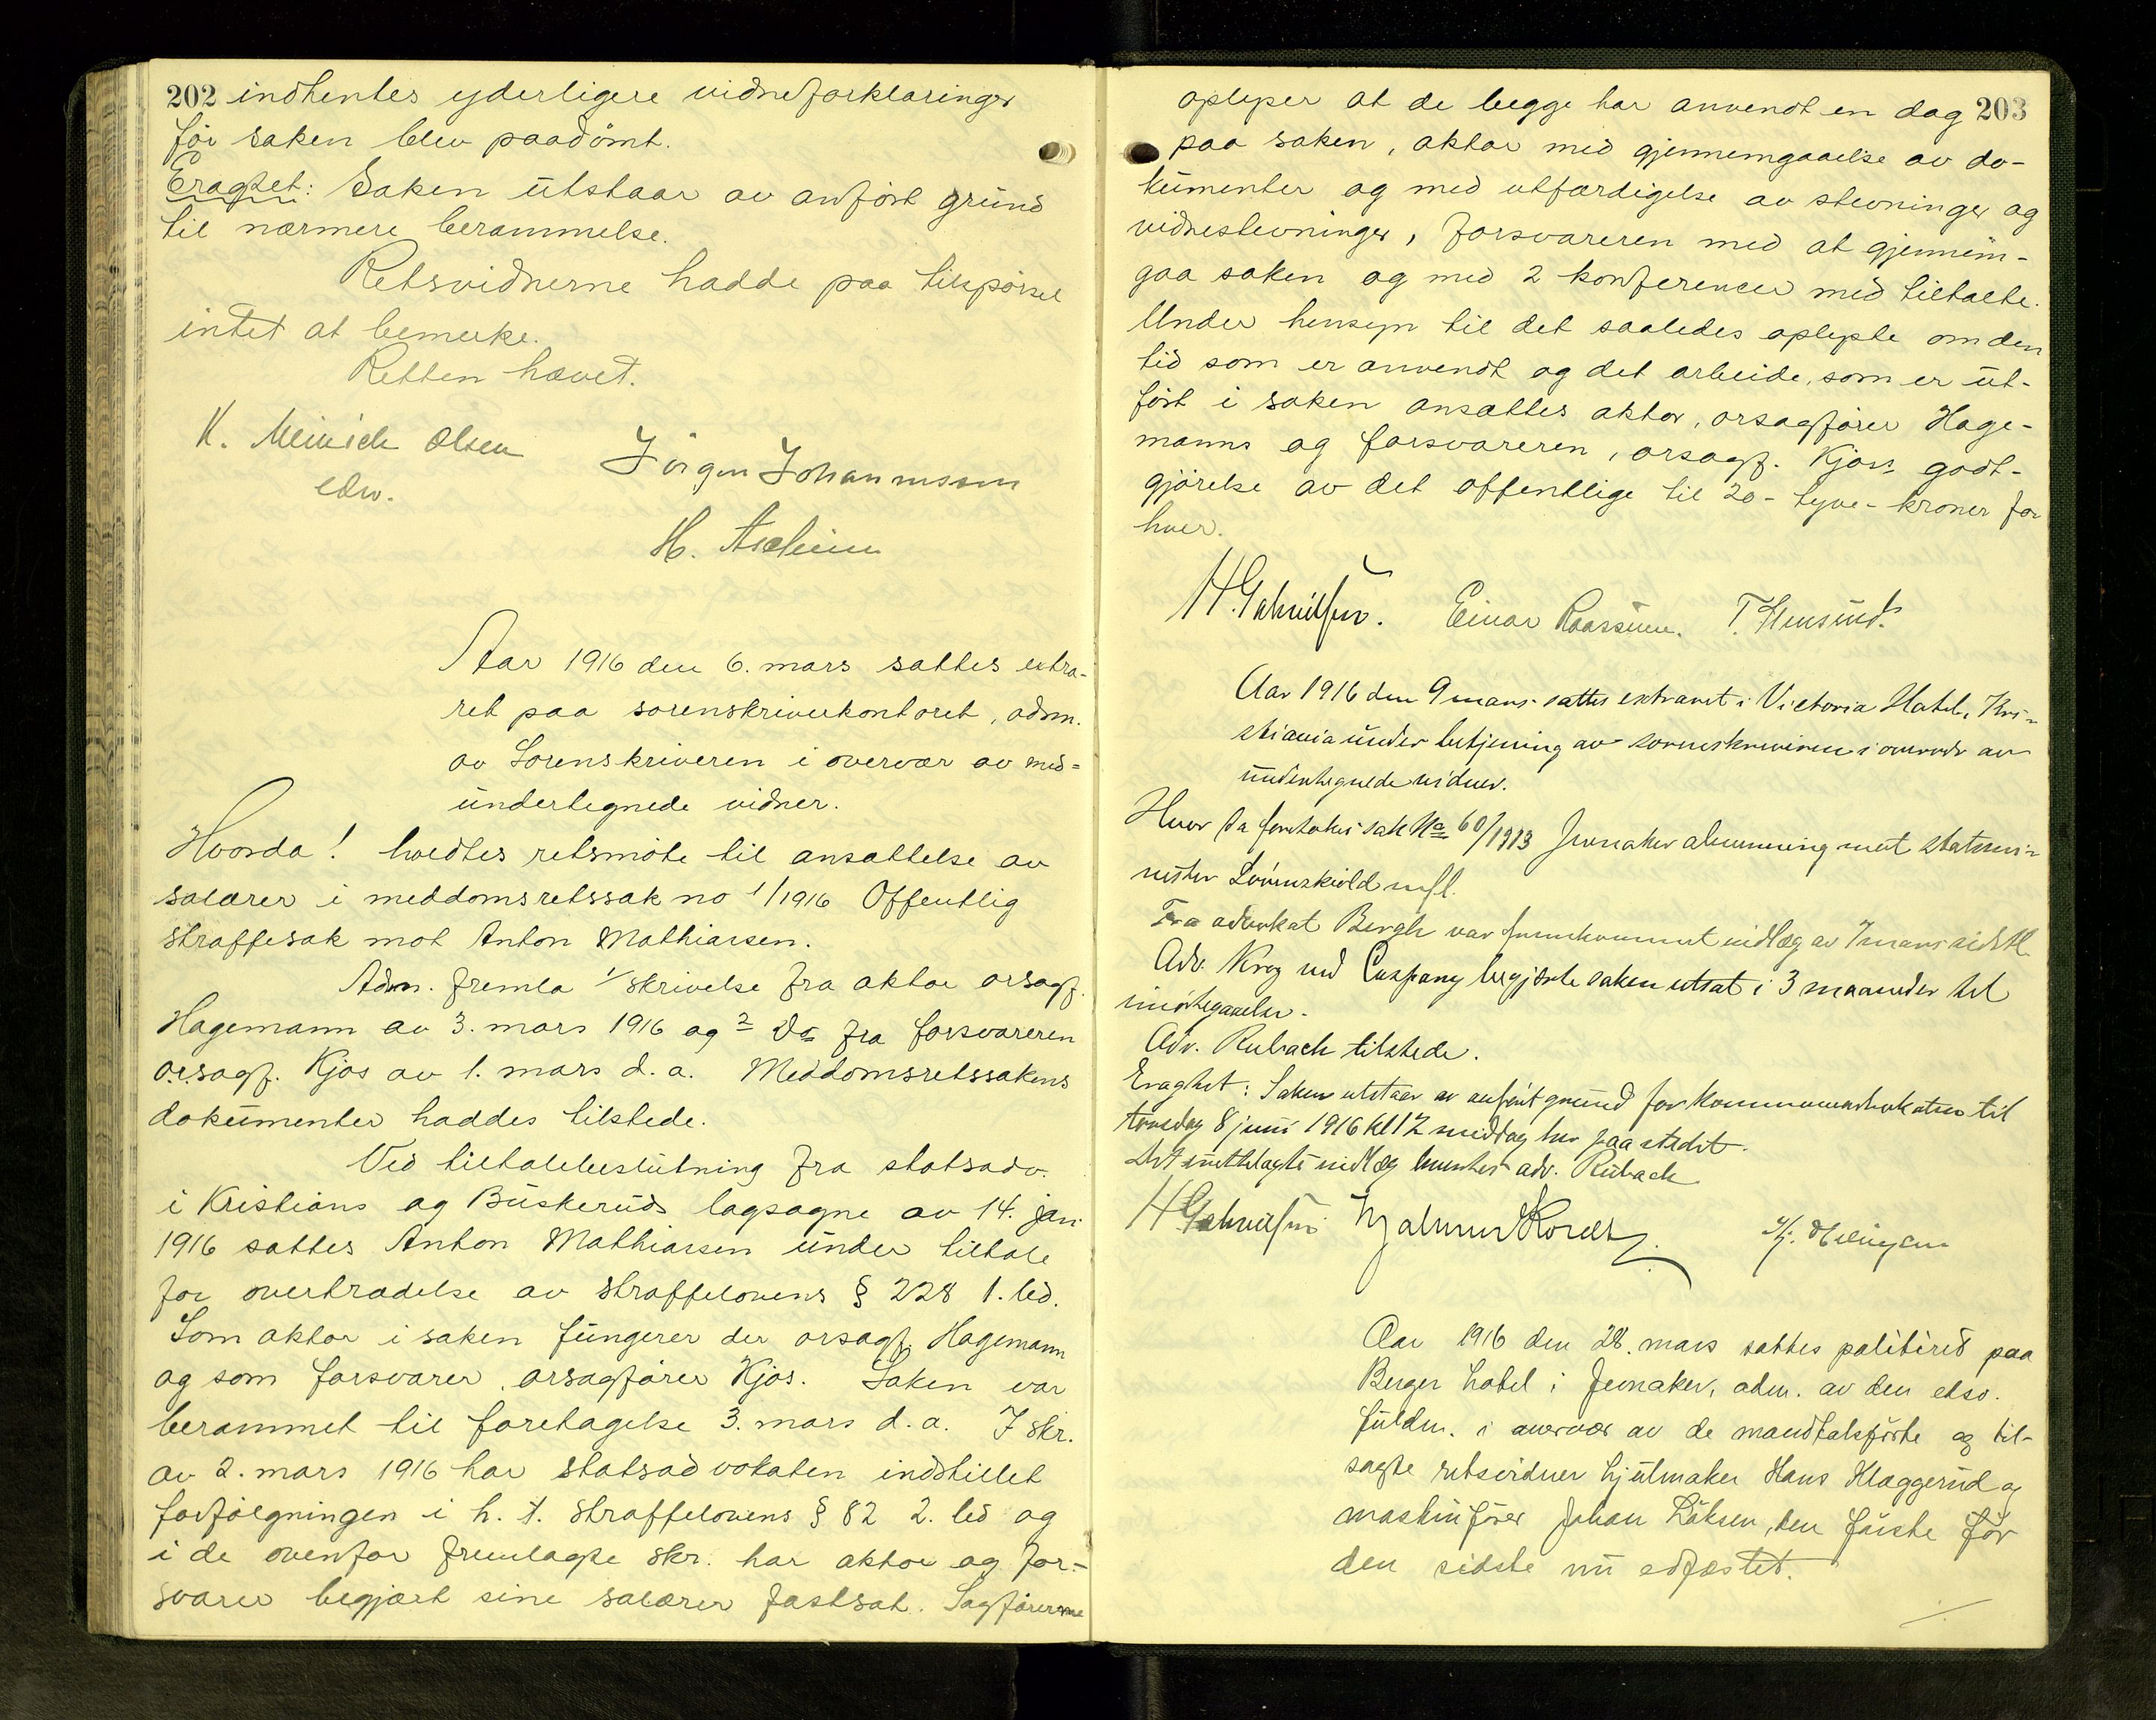 202 indhentes yderligere vidneforklaringer
før saken blev paadømt.
Eragtet: Saken utstaar av anført grund
til nærmere berammelse.
Retsvidnerne hadde paa tilspørsel
intet at bemerke.
Retten hævet.
K. Meinich Olsen
edsv.
Jörgen Johannessen
H.
Aar 1916 den 6. mars sattes extra-
ret paa sorenskriverkontoret, adm.
av Sorenskriveren i overvær av med-
undertegnede vidner.
Hvorda! holdtes retsmøte til ansættelse av
salærer i meddomsretssak no 1/1916 Offentlig
straffesak mot Anton Mathiassen.
Adm. fremla 1/ skrivelse fra aktor orsagf.
Hagemann av 3. mars 1916 og 2 do fra forsvareren
o.r.sagf. Kjos av 1. mars d.a. Meddomsretssakens
dokumenter haddes tilstede.
Ved tiltalebeslutning fra statsadv.
i Kristians og Buskeruds lagsogne av 14. jan.
1916 sattes Anton Mathiassen under tiltale
for overtrædelse av straffelovens § 228 1. led.
Som aktor i saken fungerer der orsagf. Hagemann
og som forsvarer orsagfører Kjos. Saken var
berammet til foretagelse 3. mars d.a. I skr.
av 2. mars 1916 har statsadvokaten indstillet
forfølgningen i h. t. straffelovens § 82 2. led og
i de ovenfor fremlagte skr. har aktor og for-
svarer begjært sine salærer fastsat. Sagførerne
oplyser at de begge har anvendt en dag 203
paa saken, aktor med gjennemgaaelse av do-
kumenter og med utfærdigelse av stevninger og
vidnestevninger, forsvareren med at gjennem-
gaa saken og med 2 konferencer med tiltalte.
Under hensyn til det saaledes oplyste om den
tid som er anvendt og det arbeide, som er ut-
ført i saken ansættes aktor, orsagfører Hage-
manns og forsvareren, orsagf. Kjoss godt-
gjørelse av det offentlige til 20 - tyve - kroner for
hver.
H. Gabrielsen. Einar Raassum. T.
Aar 1916 den 9 mars sattes extraret i Victoria Hotel, Kri-
stiania under betjening av sorenskriveren i overvær av
undertegnede vidner.
Hvor da foretokes sak No 60/1913 Jevnaker almenning mot statsmi-
nister Løvenskiold m fl.
Fra advokat Bergh var fremkommet indlæg av 7 mars sidstl.
Adv. Krog ved Caspary begjærte saken utsat i 3 maaneder til
imøtegaaelse.
Adv. Rubach tilstede.
Eragtet: Saken utstaar av anført grund for til
torsdag 8 juni 1916 kl 12 middag her paa stedet.
Det fremlagte indlæg adv. Rubach
H Gabrielsen Hjalmar
Aar 1916 den 28. mars sattes politiret paa
Berger hotel i Jevnaker, adm. av den edsv.
fuldm. i overvær av de mandtalsførte og til-
sagte retsvidner hjulmaker Hans Klæggerud og
maskinfører Johan Löksen, den første før
den sidste nu edfæstet.